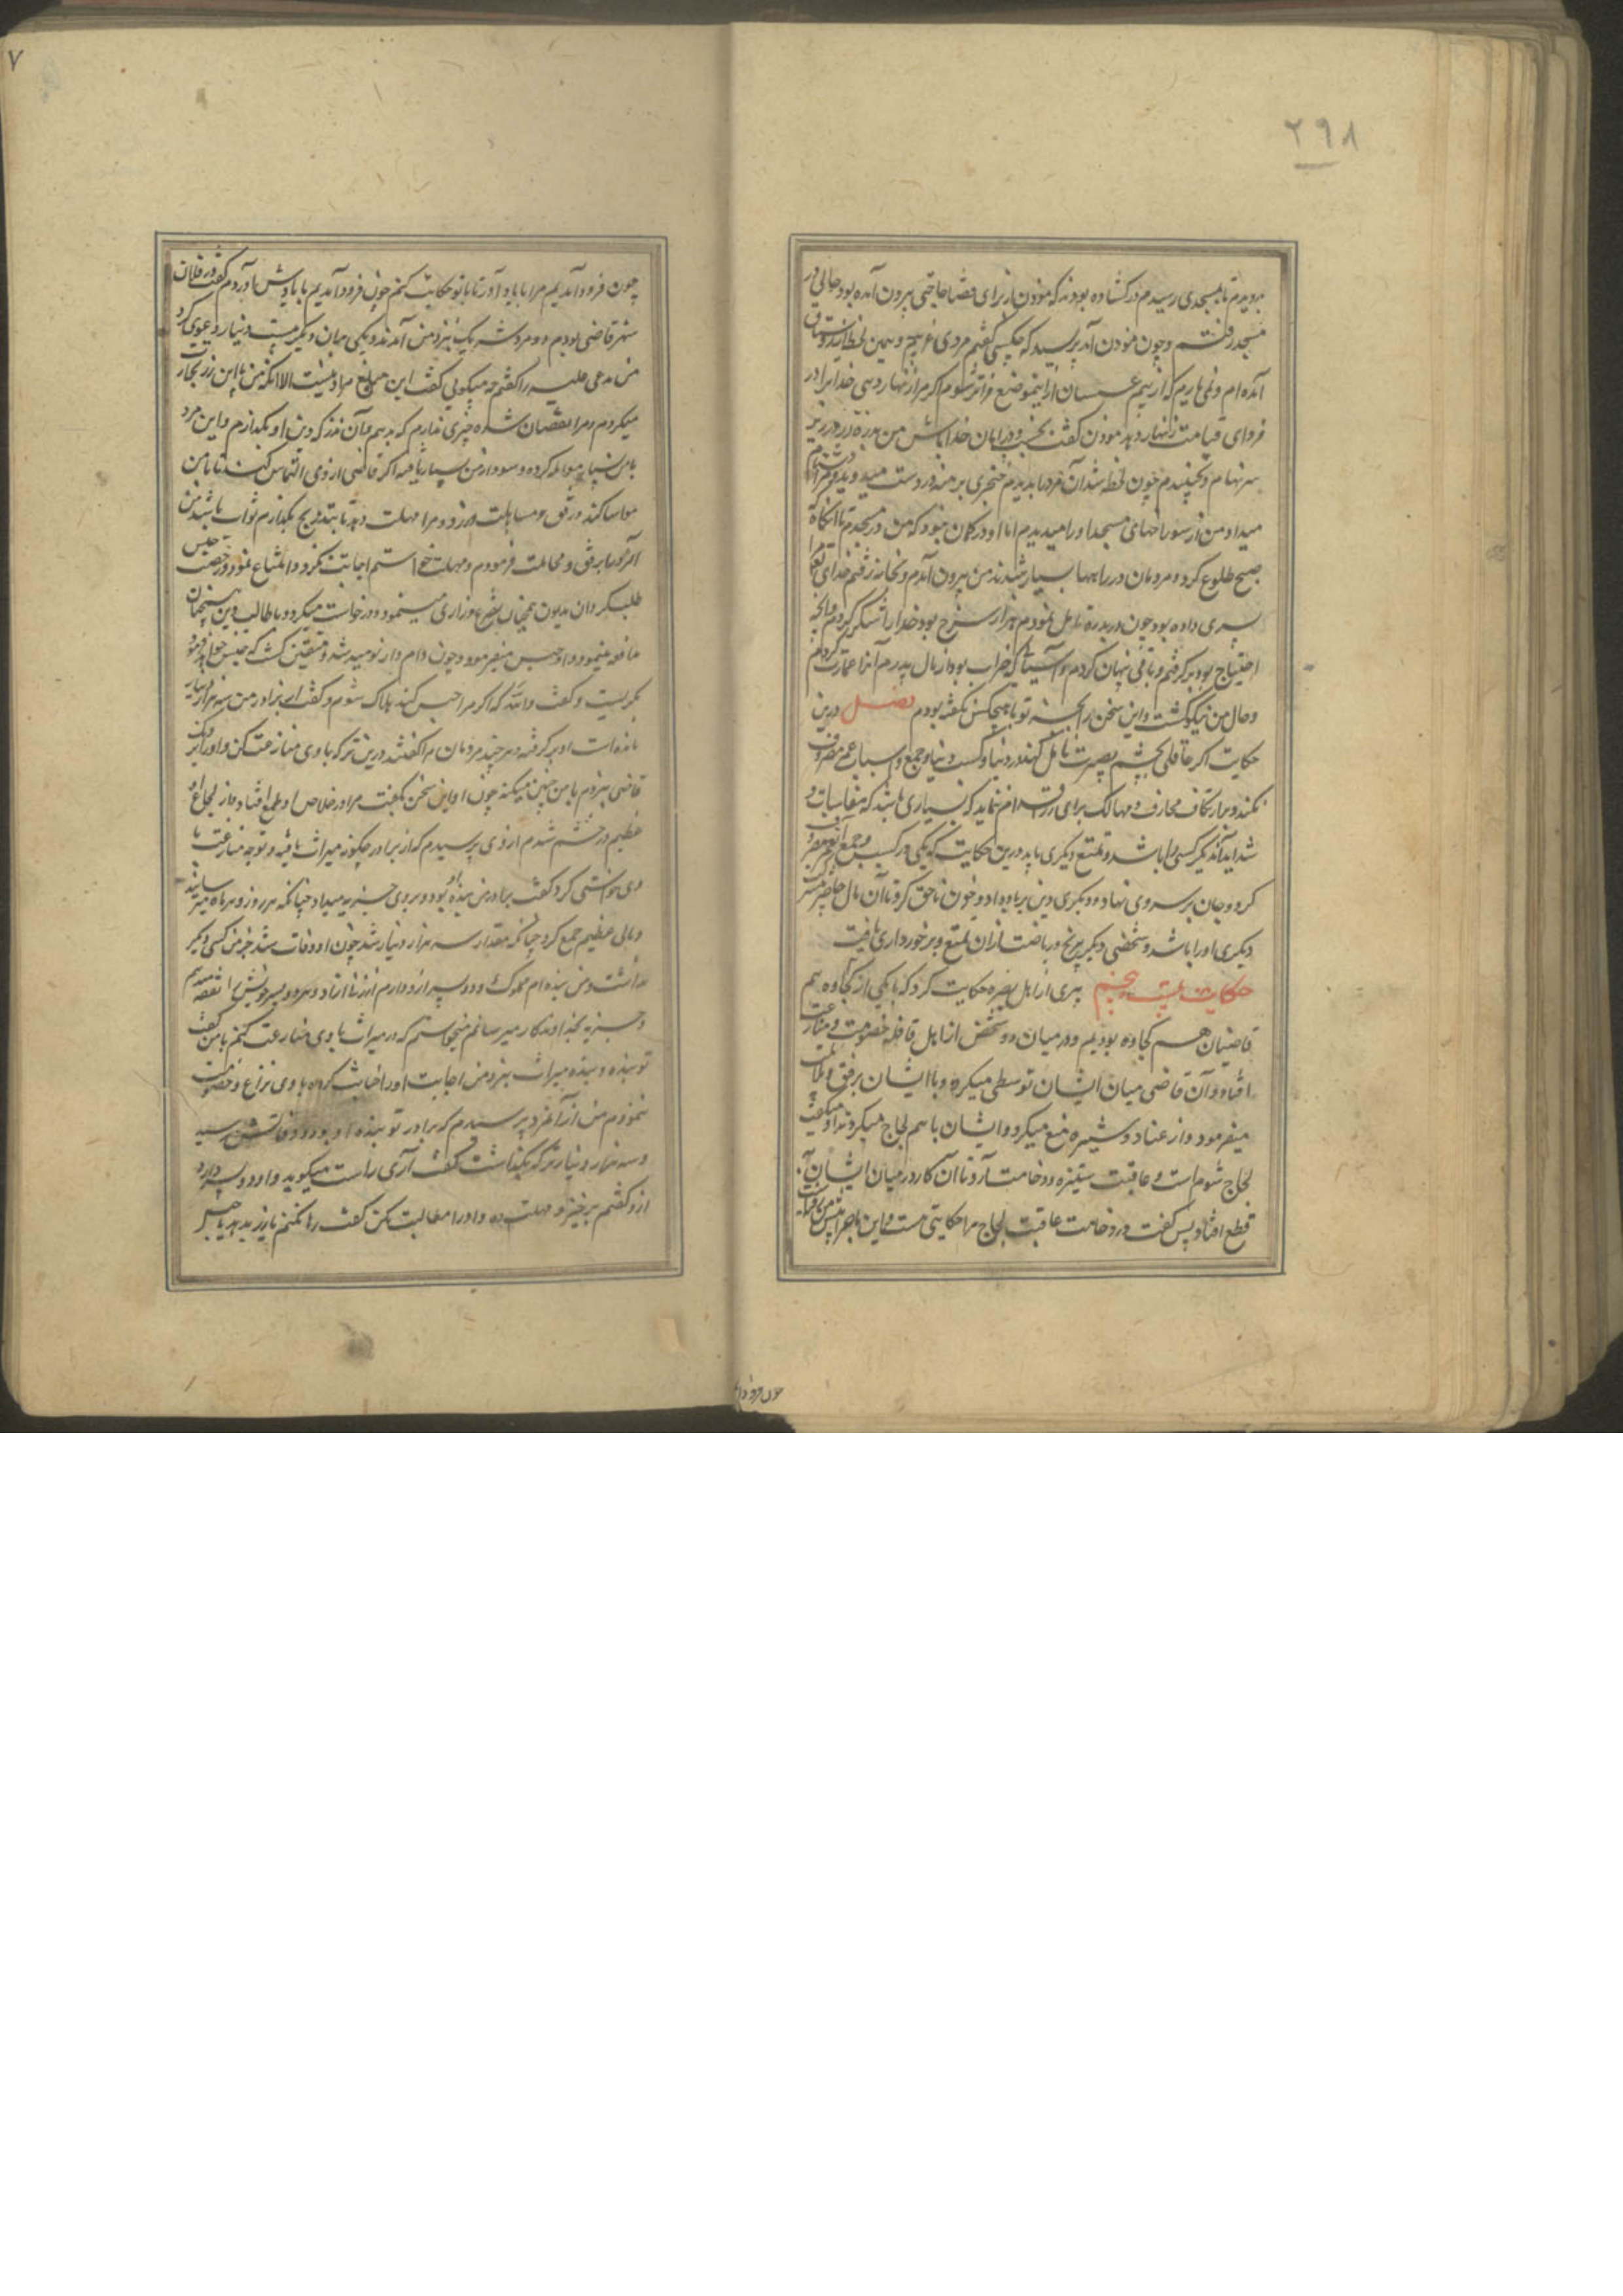 ۲۹۸
بدویدم تا بمسجدی رسیدم در کشاده بودند که موذن از برای قضا حاجتی بیرون آمده بود حالی در
مسجد رفتم و چون موذن آمد پرسید که چه کسی گفتم مردی غریبم و همین لحظه از روستاق
آمده ام و نمی یارم که از بیم عسسان ازینموضع فراتر شوم اکر مرا زنهار دهی خدا ترا در
فردای قیامت زنهار دهد موذن کفت بخسب و در امان خدا باش من بدره زر در زیر
سر نهادم و بخسپیدم چون لحظه شد آن مرد را بدیدم خنجری برهنه در دست میدوید و مرا دشنام
میداد و من از سوراخهای مسجد او را میدیدم اما او در کمان نبود که من در مسجدم تا آنکاه که
صبح طلوع کرد و مردمان در راهها بسیار شدند من بیرون آمدم و بخانه رفتم خدای تعالی مرا
پسری داده بود چون در بدره تامل نمودم هزار سرخ بود خدایرا شکر کردم و آنچه
احتیاج بود بر کرفتم و باقی پنهان کردم و آسیائی که خراب بود از مال پدرم آنرا عمارت کردم
و حال من نیکو کشت و این سخن را بجز تو با هیچکس نکفته بودم فصل درین
حکایت اکر عاقلی بچشم بصیرت تامل کند در دنیا و کسب دنیا و جمع اسباب عمر مصروف
نکند و بر ارتکاب مخاوف و مهالک برای زر اقدام ننماید که بسیاری باشد که مقاسات و
شداید آن دیکر کسی را باشد و تمتع دیکری یابد درین حکایت که یکی در کسب و جمع آن عمر صرف
کرد و جان بر سر وی نهاد و دیکری دین بر باد داد و خون ناحق کرد تا آن مال حاضر
دیکری باو را باشد و شخصی دیکر بی رنج و ریاضت از آن تمتع و برخورداری یافت
حکایت بیست و پنجم پیری از اهل بصره حکایت کرد که با یکی از کجاوه هم
قاضیان هم کجاوه بودیم و در میان دو شخص از اهل قافله خصومت و منازعت
افتاد و آن قاضی میان ایشان توسطی میکرد و با ایشان برفق
میفرمود و از عناد و ستیزه منع میکرد و ایشان با هم لجاج میکردند او میکفت
لجاج شومست و عاقبت ستیزه وخامت آرد تا آن کار در میان ایشان
قطع افتاد پس کفت در وخامت عاقبت لجاج مرا حکایتی هست و این ماجرا
چون فرود آ
۷
چون فرود آمدیم مرا با یاد آور تا با تو حکایت کنم چون فرود آمدیم با یادش آوردم کفت در فلان
شهر قاضی بودم دو مرد شریک نزد من آمدند و یکی بر آن دیکر بیست دینار دعوی کرد
من مدعی علیه را کفتم چه میکوئی کفت این مبلغ مرا دینست الا آنکه من با این زر تجارت
میکردم و مرا نقصان شده چیزی ندارم که بدهم و آن نذر که دین او بکذارم و این مرد
با من بسیار معامله کرده و سود از من بسیار یافته اکر قاضی از وی التماس کند تا با من
مواسا کند و رفق و مساهلت ورزد و مرا مهلت دهد تا بتدریج بکذارم ثواب باشد من
آمرد را برفق و مجاملت فرمودم و مهلت خواستم اجابت نکرد و امتناع نمود و رخصت حبس
طلب کرد آن مدیون همچنان تضرع و زاری مینمود و درخواست میکرد و با طالب دین همچنان
مدافعه مینمود و او حبس میفرمود و چون وام دار نومید شد و متیقن کشت که حبس خواهد فرمود
بکریست و کفت والله که اکر مرا حبس کند هلاک شوم و کفت از برادر من سه هزار دینار
مانده است او بر کرفته و هر چند مردمان مرا کفتند درین ترکه با وی منازعت کن و او را نزدیک
قاضی بر نبردم با من چنین میکند چون او این سخن بکفت مرا در خلاص او طمع افتاد و از لجاج او
عظیم در خشم شدم از وی پرسیدم که از برادر چکونه میراث یافته و توجه منازعت با
وی خواستی کرد کفت برادر من بنده او بود و بر وی جزیه میداد چنانکه هر روز و هر ماه میرسانید
و مالی عظیم جمع کرد چنانکه مقدار سه هزار دینار شد چون او وفات شد جز من کسی دیکر
نداشت و من بنده ام مملوک و دو پسر ازو دارم از زنی آزاد و هر دو پسر خویش را نفقه میدهم
و جزیه بخداوندکار میرسانم میخواستم که در میراث با وی منازعت کنم با من کفت
تو بنده و بنده میراث نبرد من اجابت او را خیانت کرده با وی نزاع و خصومت
ننمودم من از آنمرد پرسیدم که برادر تو بنده او بود و وفاتش رسید
و سه هزار دینار ترکه بکذاشت کفت آری راست میکوید و او دو پسر دارد
ازو کفتم برخیز و مهلت ده و او را مطالبت مکن کفت رها نکنم یا زر بدهد یا حبس